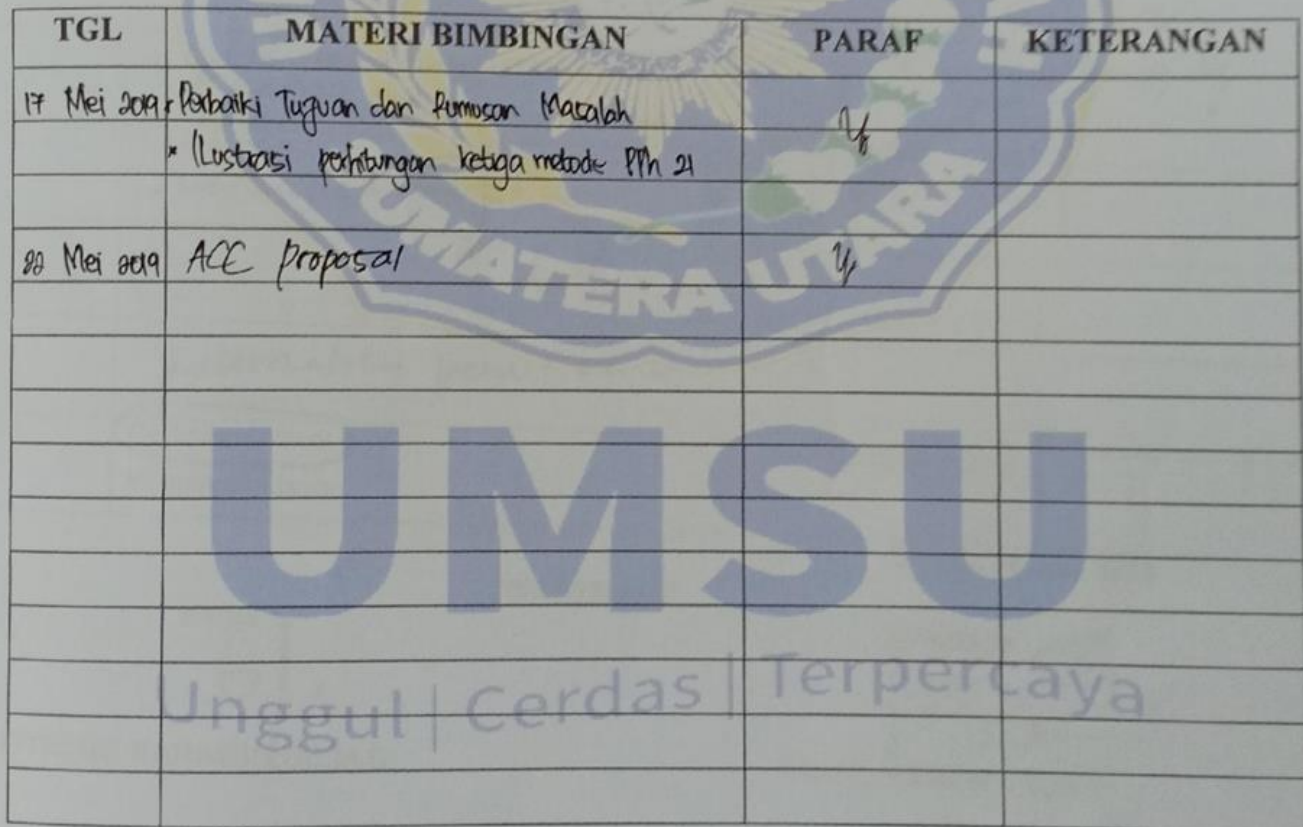 TGL MATERI BIMBINGAN PARAF KETERANGAN
17 Mei 2019 * Perbaiki Tuguan dan Rumusan Masalah
* Ilustrasi perhitungan ketiga metode PPh 21
22 Mei 2019 ACC proposal
SUMATERA UTARA
UMSU
Unggul | Cerdas | Terpercaya